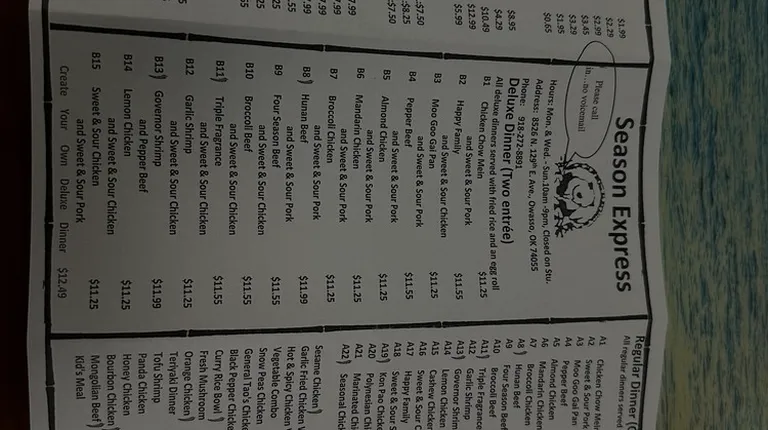 $1.99
$2.29
$2.99
$3.45
$3.29
$1.95
$0.65
$8.95
$4.29
$10.49
$12.99
$5.99
$7.50
$8.25
$7.50
Season Express
Please call
in...no voicemail
Hours: Mon. & Wed. - Sun. 10am -9pm, Closed on Stu.
Address: 8526 N. 129th E. Ave., Owasso, OK 74055
Phone: 918-272-8891
Deluxe Dinner (Two entrée)
All deluxe dinners served with fried rice and an egg roll
B1 Chicken Chow Mein $11.25
and Sweet & Sour Pork
B2 Happy Family $11.55
and Sweet & Sour Chicken
B3 Moo Goo Gai Pan $11.25
and Sweet & Sour Pork
B4 Pepper Beef $11.55
and Sweet & Sour Pork
B5 Almond Chicken $11.25
and Sweet & Sour Pork
B6 Mandarin Chicken $11.25
and Sweet & Sour Pork
B7 Broccoli Chicken $11.25
and Sweet & Sour Pork
B8 Hunan Beef $11.99
and Sweet & Sour Pork
B9 Four Season Beef $11.55
and Sweet & Sour Chicken
B10 Broccoli Beef $11.55
and Sweet & Sour Chicken
B11 Triple Fragrance $11.55
and Sweet & Sour Chicken
B12 Garlic Shrimp $11.25
and Sweet & Sour Chicken
B13 Governor Shrimp $11.99
and Pepper Beef
B14 Lemon Chicken $11.25
and Sweet & Sour Chicken
B15 Sweet & Sour Chicken $11.25
and Sweet & Sour Pork
Create Your Own Deluxe Dinner $12.49
Regular Dinner
All regular dinners served
A1 Chicken Chow Mein
A2 Sweet & Sour Pork
A3 Moo Goo Gai Pan
A4 Pepper Beef
A5 Almond Chicken
A6 Mandarin Chicken
A7 Broccoli Chicken
A8 Hunan Beef
A9 Four Season Beef
A10 Broccoli Beef
A11 Triple Fragrance
A12 Garlic Shrimp
A13 Governor Shrim
A14 Lemon Chicken
A15 Cashew Chicken
A16 Sweet & Sour C
A17 Happy Family
A18 Sweet & Sour S
A19 Kon Pao Chicke
A20 Polynesian Chi
A21 Marinated Chi
A22 Seasonal Chic
Sesame Chicken
Garlic Fried Chicken
Hot & Spicy Chicken
Vegetable Combo
Snow Peas Chicken
General Tao's Chick
Black Pepper Chicke
Curry Rice Bowl
Fresh Mushroom
Orange Chicken
Teriyaki Dinner
Tofu Shrimp
Panda Chicken
Honey Chicken
Bourbon Chicken
Mongolian Beef
Kid's Meal